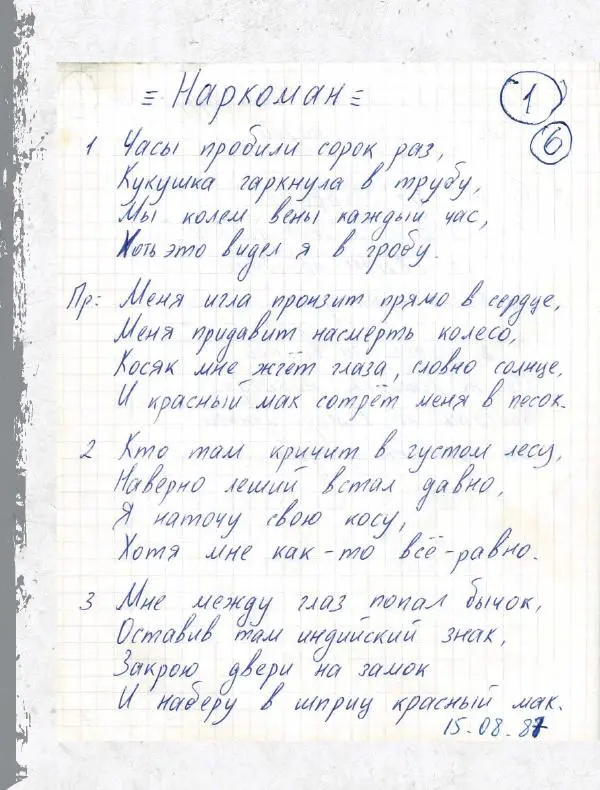 = Наркоман =
1
6
1 Часы пробили сорок раз,
Кукушка гаркнула в трубу,
Мы колем вены каждый час,
Хоть это видел я в гробу.
Пр: Меня игла пронзит прямо в сердце,
Меня придавит насмерть колесо,
Косяк мне жгёт глаза, словно солнце,
И красный мак сотрёт меня в песок.
2 Кто там кричит в густом лесу,
Наверно леший встал давно,
Я наточу свою косу,
Хотя мне как-то всё-равно.
3 Мне между глаз попал бычок,
Оставив там индийский знак,
Закрою двери на замок
И наберу в шприц красный мак.
15.08.87